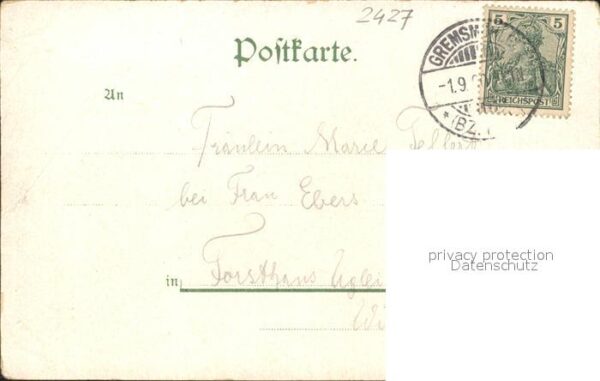 2427
Poſtkarte.
5 5
GREMSM
-1.9.
*(BZ.
REICHSPOST
An
Fräulein Marie
bei Frau Ebers
privacy protection
Datenschutz
in Forsthaus Uglei